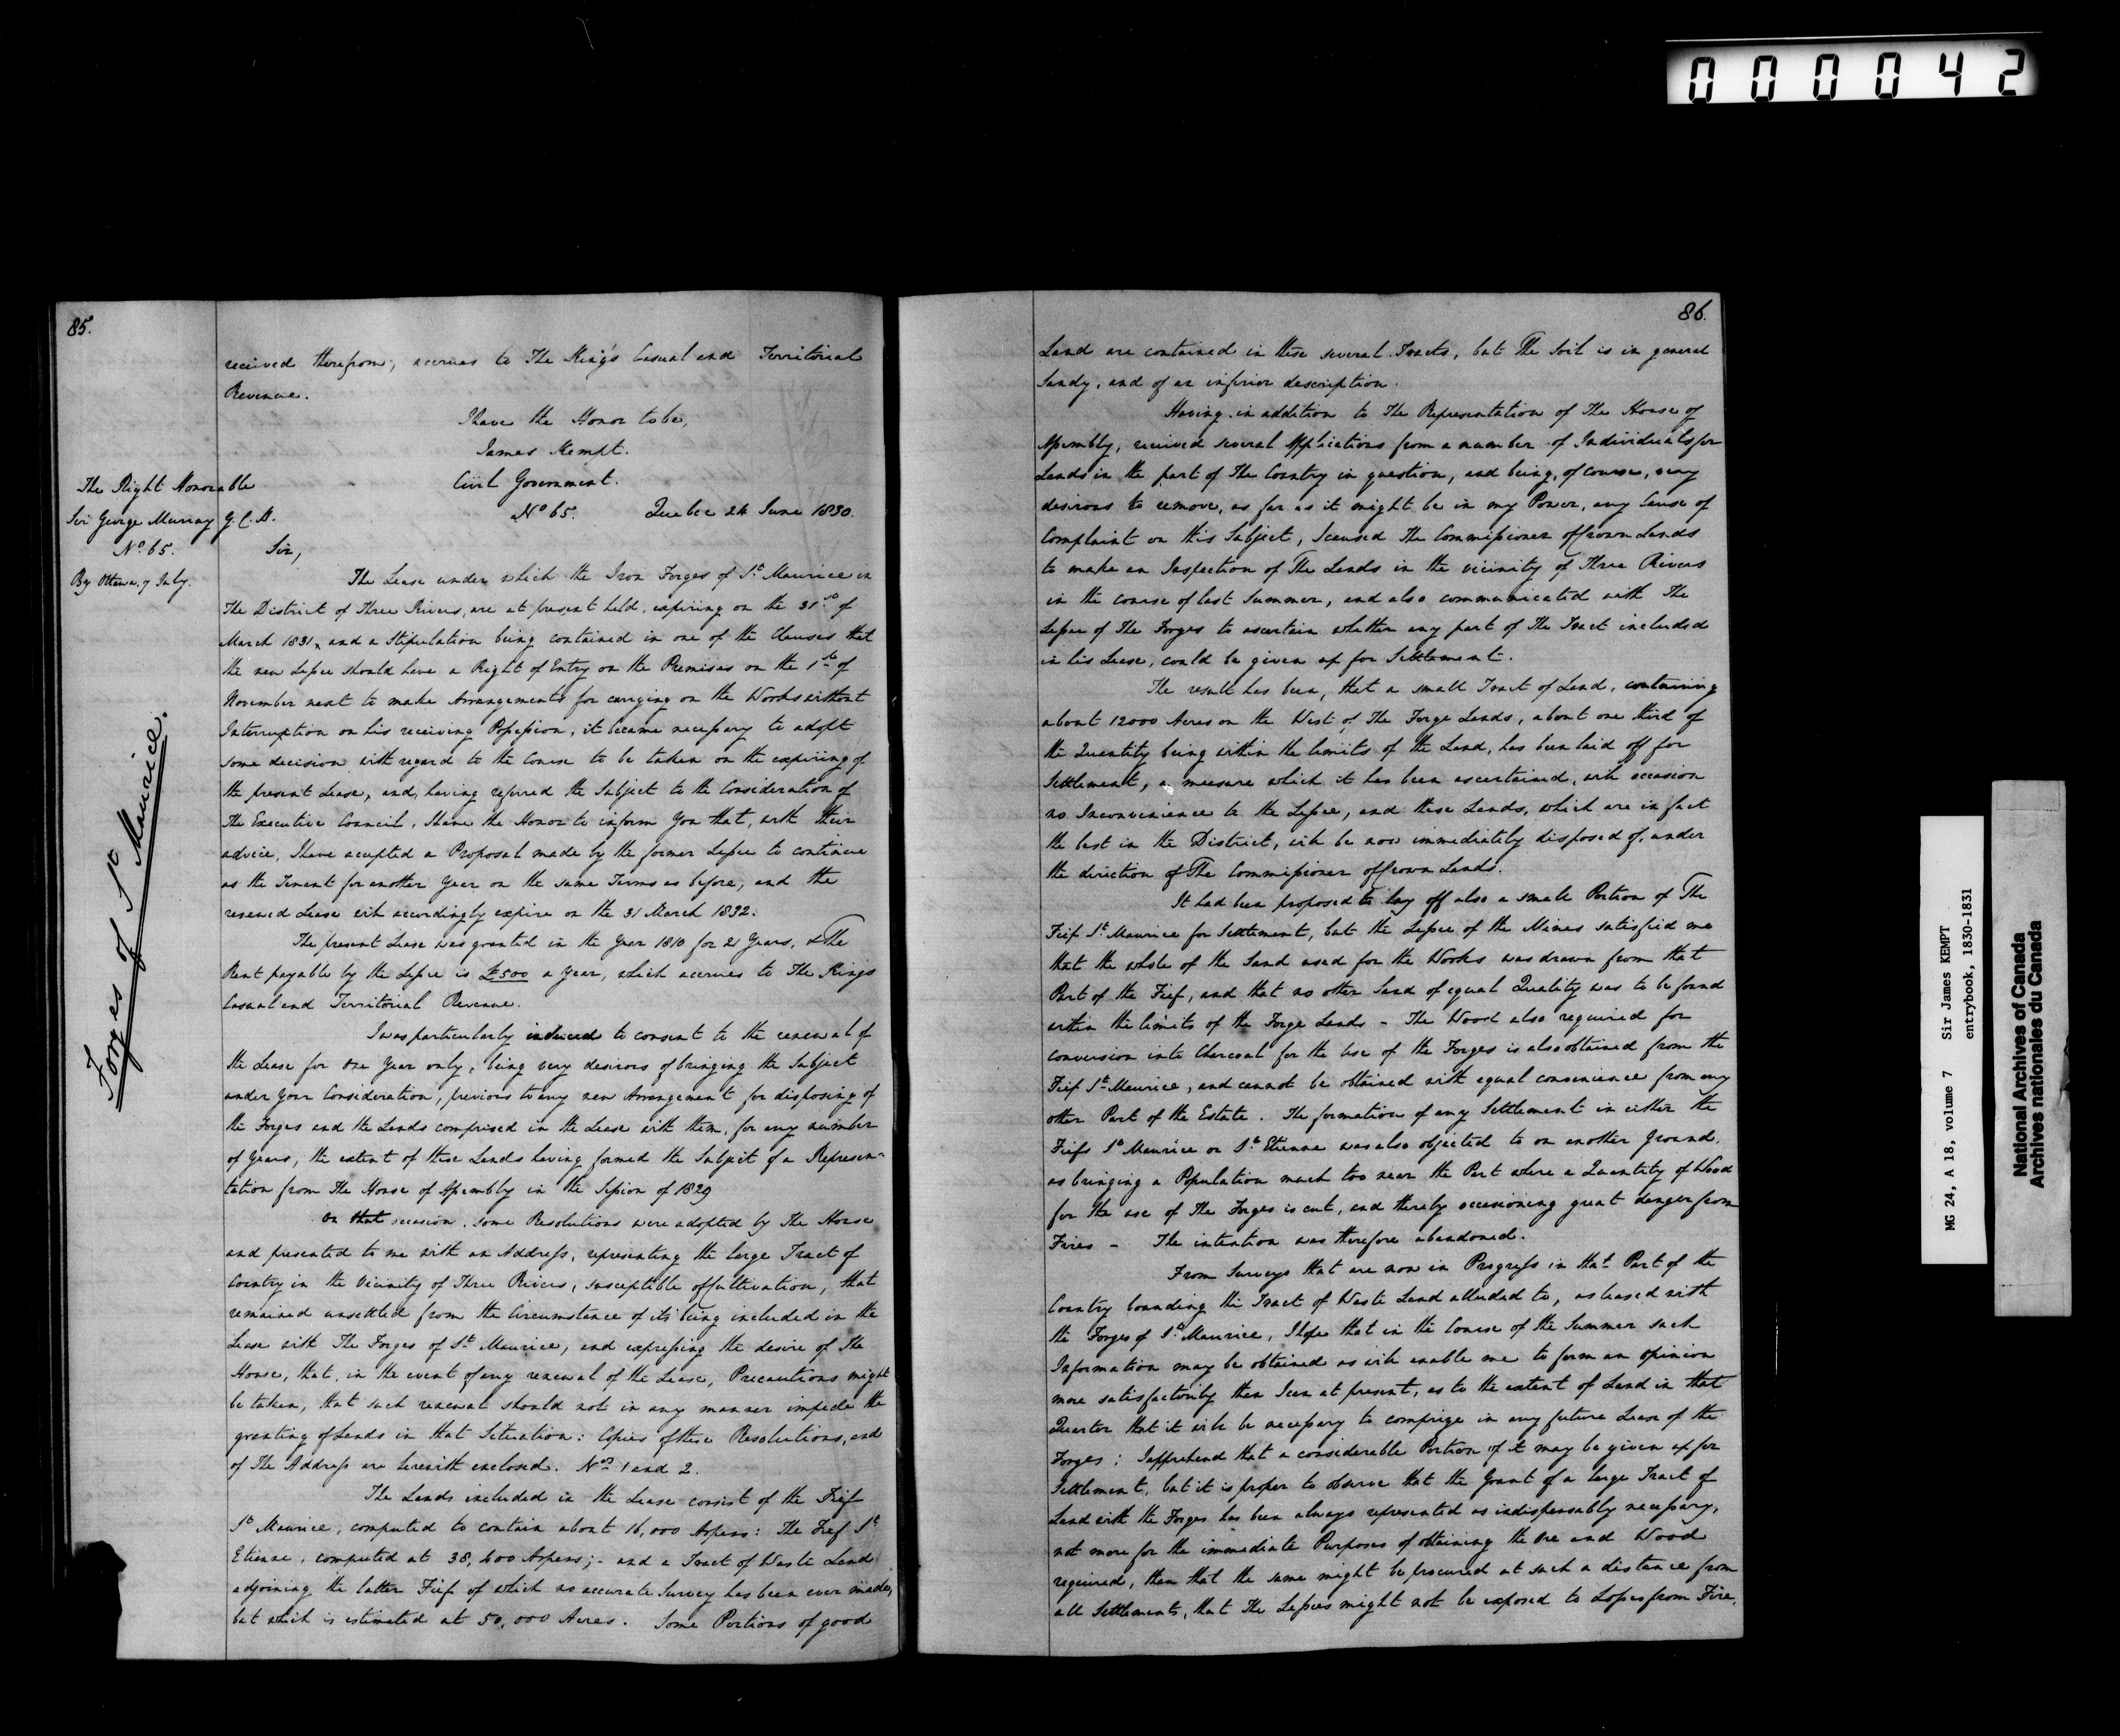 000042
85.
received therefrom, accrues to The King's Casual and Territorial
Revenue.
I have the Honor to be,
James Kempt.
The Right Honorable
Sir George Murray G.C.B.
No. 65.
By Ottawa, 7 July.
Forges of St Maurice.
Civil Government.
No 65. Quebec 24 June 1830.
Sir,
The Lease under which the Iron Forges of St. Maurice in
The District of Three Rivers, are at present held, expiring on the 31st of
March 1831, and a Stipulation being contained in one of the Clauses that
the new Lessee should have a Right of Entry on the Premises on the 1st of
November next to make Arrangements for carrying on the Works without
Interruption on his receiving Possession, it became necessary to adopt
some decision with regard to the Course to be taken on the expiring of
the present Lease, and, having referred the Subject to the Consideration of
The Executive Council, I have the Honor to inform You that, with their
advice, I have accepted a Proposal made by the former Lessee to continue
as the Tenant for another Year on the same Terms as before, and the
renewed Lease will accordingly expire on the 31 March 1832.
The present Lease was granted in the Year 1810 for 21 Years, & The
Rent payable by the Lessee is £500 a Year, which accrues to The King's
Casual and Territorial Revenue.
I was particularly induced to consent to the renewal of
the Lease for One Year only, being very desirous of bringing the Subject
under Your Consideration, previous to any new Arrangement for disposing of
the Forges and the Lands comprised in the Lease with them, for any number
of Years, the extent of these Lands having formed the Subject of a Represen-
tation from The House of Assembly in the Session of 1829
On that occasion, some Resolutions were adopted by The House
and presented to me with an Address, representing the large Tract of
Country in the Vicinity of Three Rivers, susceptible of Cultivation, that
remained unsettled from the Circumstance of its being included in the
Lease with The Forges of St. Maurice, and expressing the desire of The
House, that, in the event of any renewal of the Lease, Precautions might
be taken, that such renewal should not in any manner impede the
granting of Lands in that Situation: Copies of these Resolutions, and
of The Address are herewith enclosed. Nos 1 and 2.
The Lands included in the Lease consist of the Fief
St Maurice, computed to contain about 16,000 Arpens: The Fief St
Etienne, computed at 38,600 Arpens;- and a Tract of Waste Land
adjoining the latter Fief of which no accurate Survey has been ever made,
but which is estimated at 50,000 Acres. Some Portions of good
86.
Land are contained in these several Tracts, but The Soil is in general
Sandy, and of an inferior description.
Having in addition to The Representation of The House of
Assembly, received several Applications from a number of Individuals for
Lands in the part of The Country in question, and being, of course, very
desirous to remove, as far as it might be in my Power, any Cause of
Complaint on this Subject, I caused The Commissioner of Crown Lands
to make an Inspection of The Lands in the vicinity of Three Rivers
in the course of last Summer, and also communicated with The
Lessee of The Forges to ascertain whether any part of The Tract included
in his Lease, could be given up for Settlement.
The result has been, that a small Tract of Land, containing
about 12000 Acres on the West of The Forge Lands, about one third of
the Quantity being within the limits of the Land, has been laid off for
Settlement, a measure which it has been ascertained, will occasion
no Inconvenience to the Lessee, and these Lands, which are in fact
the best in the District, will be now immediately disposed of, under
the direction of The Commissioner of Crown Lands.
It had been proposed to lay off also a small Portion of The
Fief St. Maurice for Settlement, but the Lessee of the Mines satisfied me
that the whole of the Sand used for the Works was drawn from that
Part of the Fief, and that no other Sand of equal Quality was to be found
within the limits of the Forge Lands - The Wood also required for
conversion into Charcoal for the Use of the Forges is also obtained from the
Fief St. Maurice, and cannot be obtained with equal convenience from any
other Part of the Estate. The formation of any Settlement in either the
Fiefs St Maurice or St. Etienne was also objected to on another ground,
as bringing a Population much too near the Part where a Quantity of Wood
for the use of The Forges is cut, and thereby occasioning great danger from
Fires - The intention was therefore abandoned.
From Surveys that are now in Progress in that Part of the
Country bounding the Tract of Waste Land alluded to, as leased with
the Forges of St. Maurice, I hope that in the Course of the Summer such
Information may be obtained as will enable me to form an opinion
more satisfactorily than I can at present, as to the extent of Land in that
Quarter that it will be necessary to comprize in any future Lease of the
Forges; I apprehend that a considerable Portion of it may be given up for
Settlement, but it is proper to observe that the Grant of a large Tract of
Land with the Forges has been always represented as indispensably necessary,
not more for the immediate Purposes of obtaining the Ore and Wood
required, than that the same might be procured at such a distance from
all Settlements, that The Lessees might not be exposed to Losses from Fire,
MG 24, A 18, volume 7 Sir James KEMPT
entrybook, 1830-1831
National Archives of Canada
Archives nationales du Canada